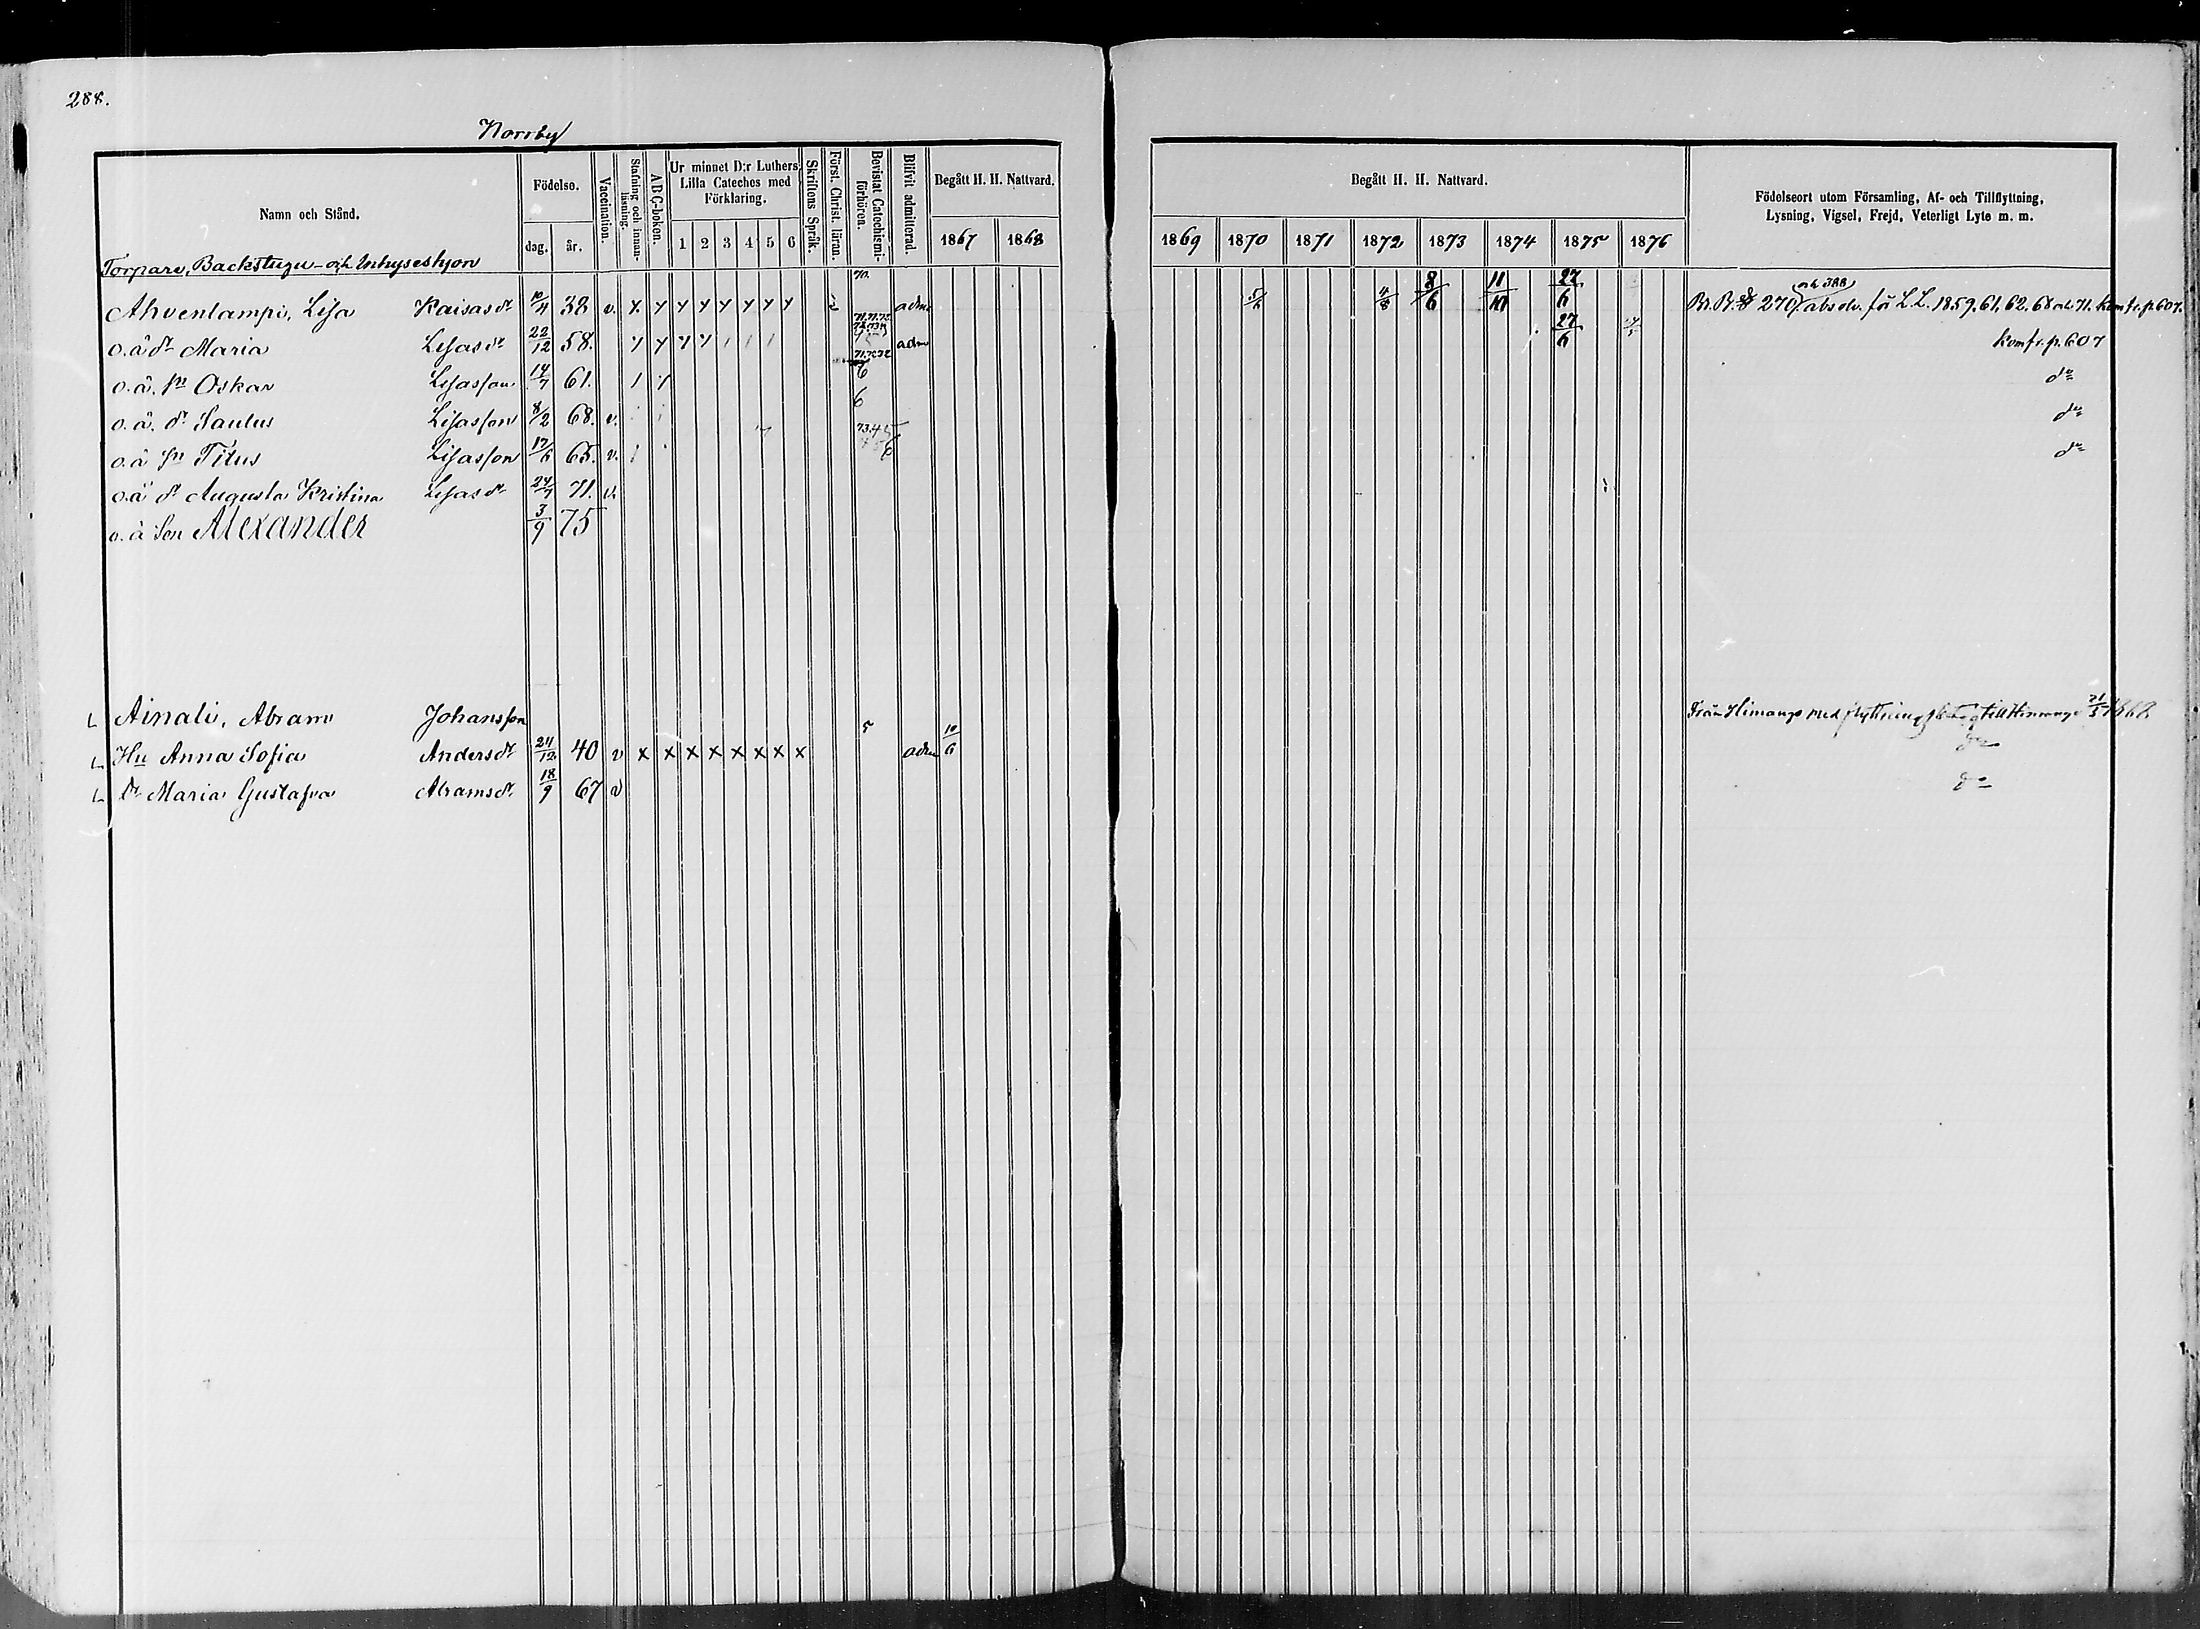 288.
Norrby
Namn och Stånd. Födelse. Vaccination. Stafning och innanläsning. ABC-boken. Ur minnet D:r Luthers Lilla Cateches med Förklaring. Skriftens Språk. Först. Christ. läran. Bevistat Catechismiförhören. Blifvit admitterad. Begått H. H. Nattvard. Begått H. H. Nattvard. Födelseort utom Församling, Af- och Tillflyttning, Lysning, Vigsel, Frejd, Veterligt Lyte m. m.
dag. år. 1 2 3 4 5 6 1867 1868 1869 1870 1871 1872 1873 1874 1875 1876
Torpare, Backstugu- och Inhyseshjon
Ahventampi, Lisa Kaisasdr 10/4 38 v. 70. adm 4/8 8/6 11/10 27/6 270 absolv. för L.L. 1859. 61. 62. 68 och 71. Kom fr. p. 607.
o.ä dr Maria Lisasdr 22/12 58. adm 27/6 Kom fr. p. 607
o.ä. sn Oskar Lisasson 14/7 61. 6 do
o.ä. dr Saulus Lisasson 8/2 68. v. 6 do
o.ä sn Titus Lisasson 17/6 65. v. 6 do
o.ä dr Augusta Kristina Lisasdr 24/7 71. v.
o.ä Son Alexander 3/9 75
Ainali, Abram Johansson 5 Från Himango med flyttningsbetyg till Himango 21/3 1868
Hu Anna Sofia Andersdr 24/12 40 v x x x x x x x x adm 10/6 do
dr Maria Gustafva Abramsdr 18/9 67 v do